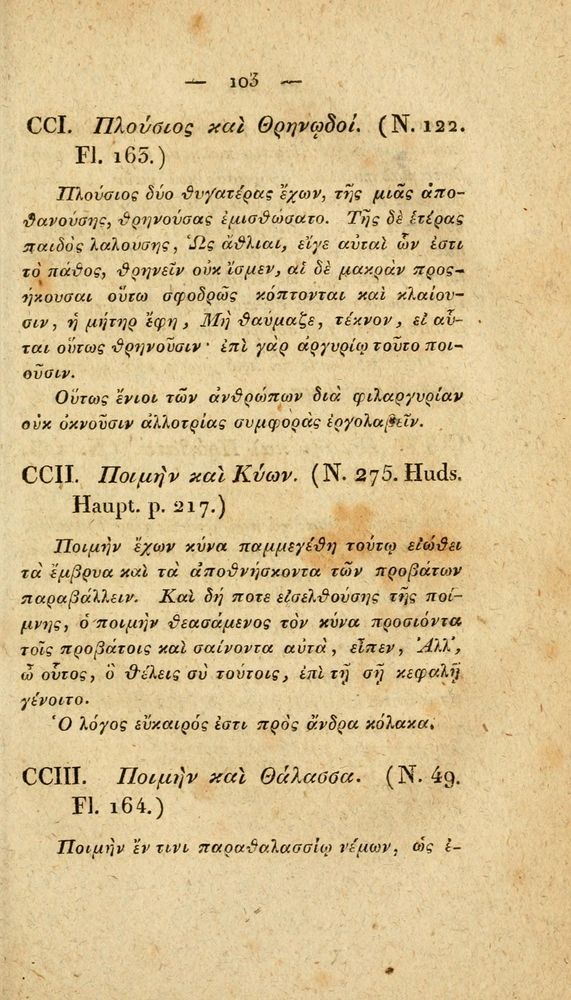 — 103 —
CCI. Πλούσιος καὶ Θρηνῳδοί. (N. 122.
Fl. 163.)
Πλούσιος δύο θυγατέρας ἔχων, τῆς μιᾶς ἀπο-
θανούσης, θρηνούσας ἐμισθώσατο. Τῆς δὲ ἑτέρας
παιδὸς λαλούσης, Ὡς ἄθλιαι, εἴγε αὐταὶ ὧν ἐστι
τὸ πάθος, θρηνεῖν οὐκ ἴσμεν, αἱ δὲ μακρὰν προς-
ήκουσαι οὕτω σφοδρῶς κόπτονται καὶ κλαίου-
σιν, ἡ μήτηρ ἔφη, Μὴ θαύμαζε, τέκνον, εἰ αὗ-
ται οὕτως θρηνοῦσιν· ἐπὶ γὰρ ἀργυρίῳ τοῦτο ποι-
οῦσιν.
Οὕτως ἔνιοι τῶν ἀνθρώπων διὰ φιλαργυρίαν
οὐκ ὀκνοῦσιν ἀλλοτρίας συμφορὰς ἐργολαβεῖν.
CCII. Ποιμὴν καὶ Κύων. (N. 275. Huds.
Haupt. p. 217.)
Ποιμὴν ἔχων κύνα παμμεγέθη τούτῳ εἰώθει
τὰ ἔμβρυα καὶ τὰ ἀποθνήσκοντα τῶν προβάτων
παραβάλλειν. Καὶ δή ποτε εἰσελθούσης τῆς ποί-
μνης, ὁ ποιμὴν θεασάμενος τὸν κύνα προσιόντα
τοῖς προβάτοις καὶ σαίνοντα αὐτὰ, εἶπεν, Ἀλλ',
ὦ οὗτος, ὃ θέλεις σὺ τούτοις, ἐπὶ τῇ σῇ κεφαλῇ
γένοιτο.
Ὁ λόγος εὔκαιρός ἐστι πρὸς ἄνδρα κόλακα.
CCIII. Ποιμὴν καὶ Θάλασσα. (N. 49.
Fl. 164.)
Ποιμὴν ἔν τινι παραθαλασσίῳ νέμων, ὡς ἐ-